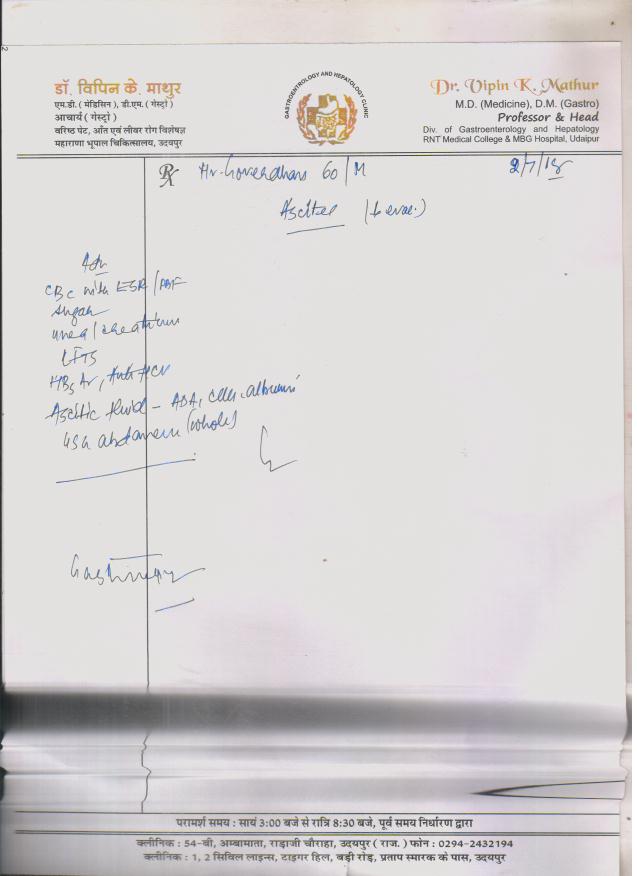 डॉ. विपिन के. माथुर
एम.डी. ( मेडिसिन ), डी.एम. ( गेस्ट्रो )
आचार्य ( गेस्ट्रो )
वरिष्ठ पेट, आँत एवं लीवर रोग विशेषज्ञ
महाराणा भूपाल चिकित्सालय, उदयपुर
GASTROENTEROLOGY AND HEPATOLOGY CLINIC
Dr. Vipin K. Mathur
M.D. (Medicine), D.M. (Gastro)
Professor & Head
Div. of Gastroenterology and Hepatology
RNT Medical College & MBG Hospital, Udaipur
Rx 60/M 2/7/18
Ascites
Adv
CBC with ESR/PBF
Sugar
LFTS
HBsAg, Anti HCV
Ascitic fluid - ADA, cells, albumin
USG abdomen (whole)
परामर्श समय : सायं 3:00 बजे से रात्रि 8:30 बजे, पूर्व समय निर्धारण द्वारा
क्लीनिक : 54-बी, अम्बामाता, राड़ाजी चौराहा, उदयपुर ( राज. ) फोन : 0294-2432194
क्लीनिक : 1, 2 सिविल लाइन्स, टाइगर हिल, बड़ी रोड़, प्रताप स्मारक के पास, उदयपुर